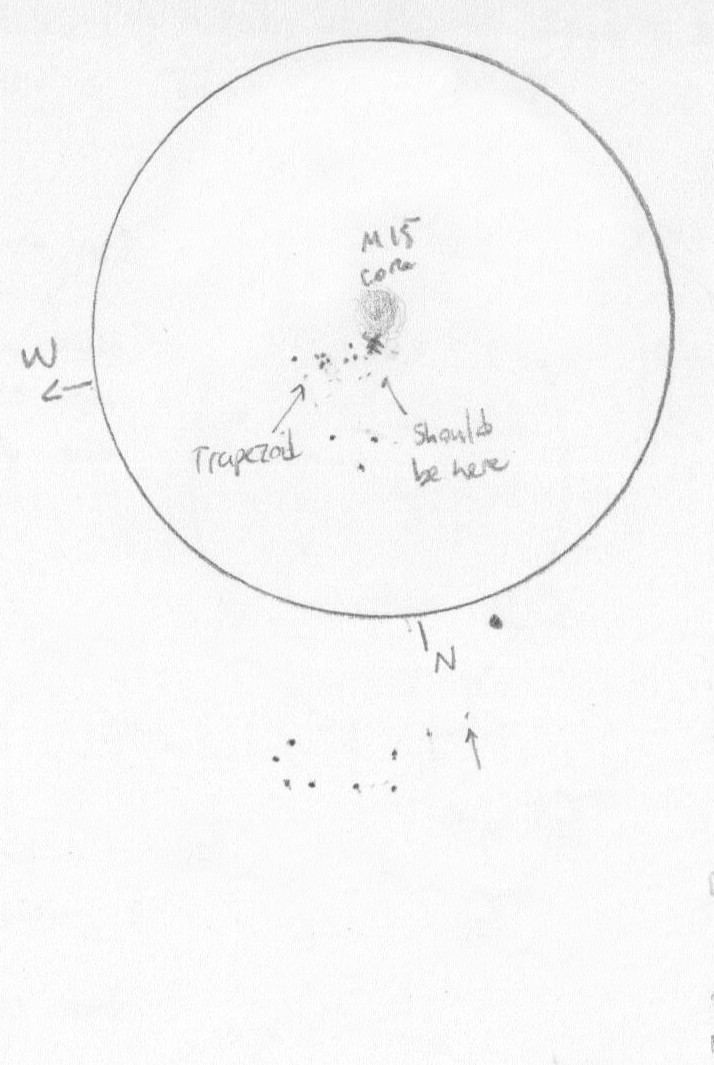 M15
core
W
Trapezoid
Should
be here
N